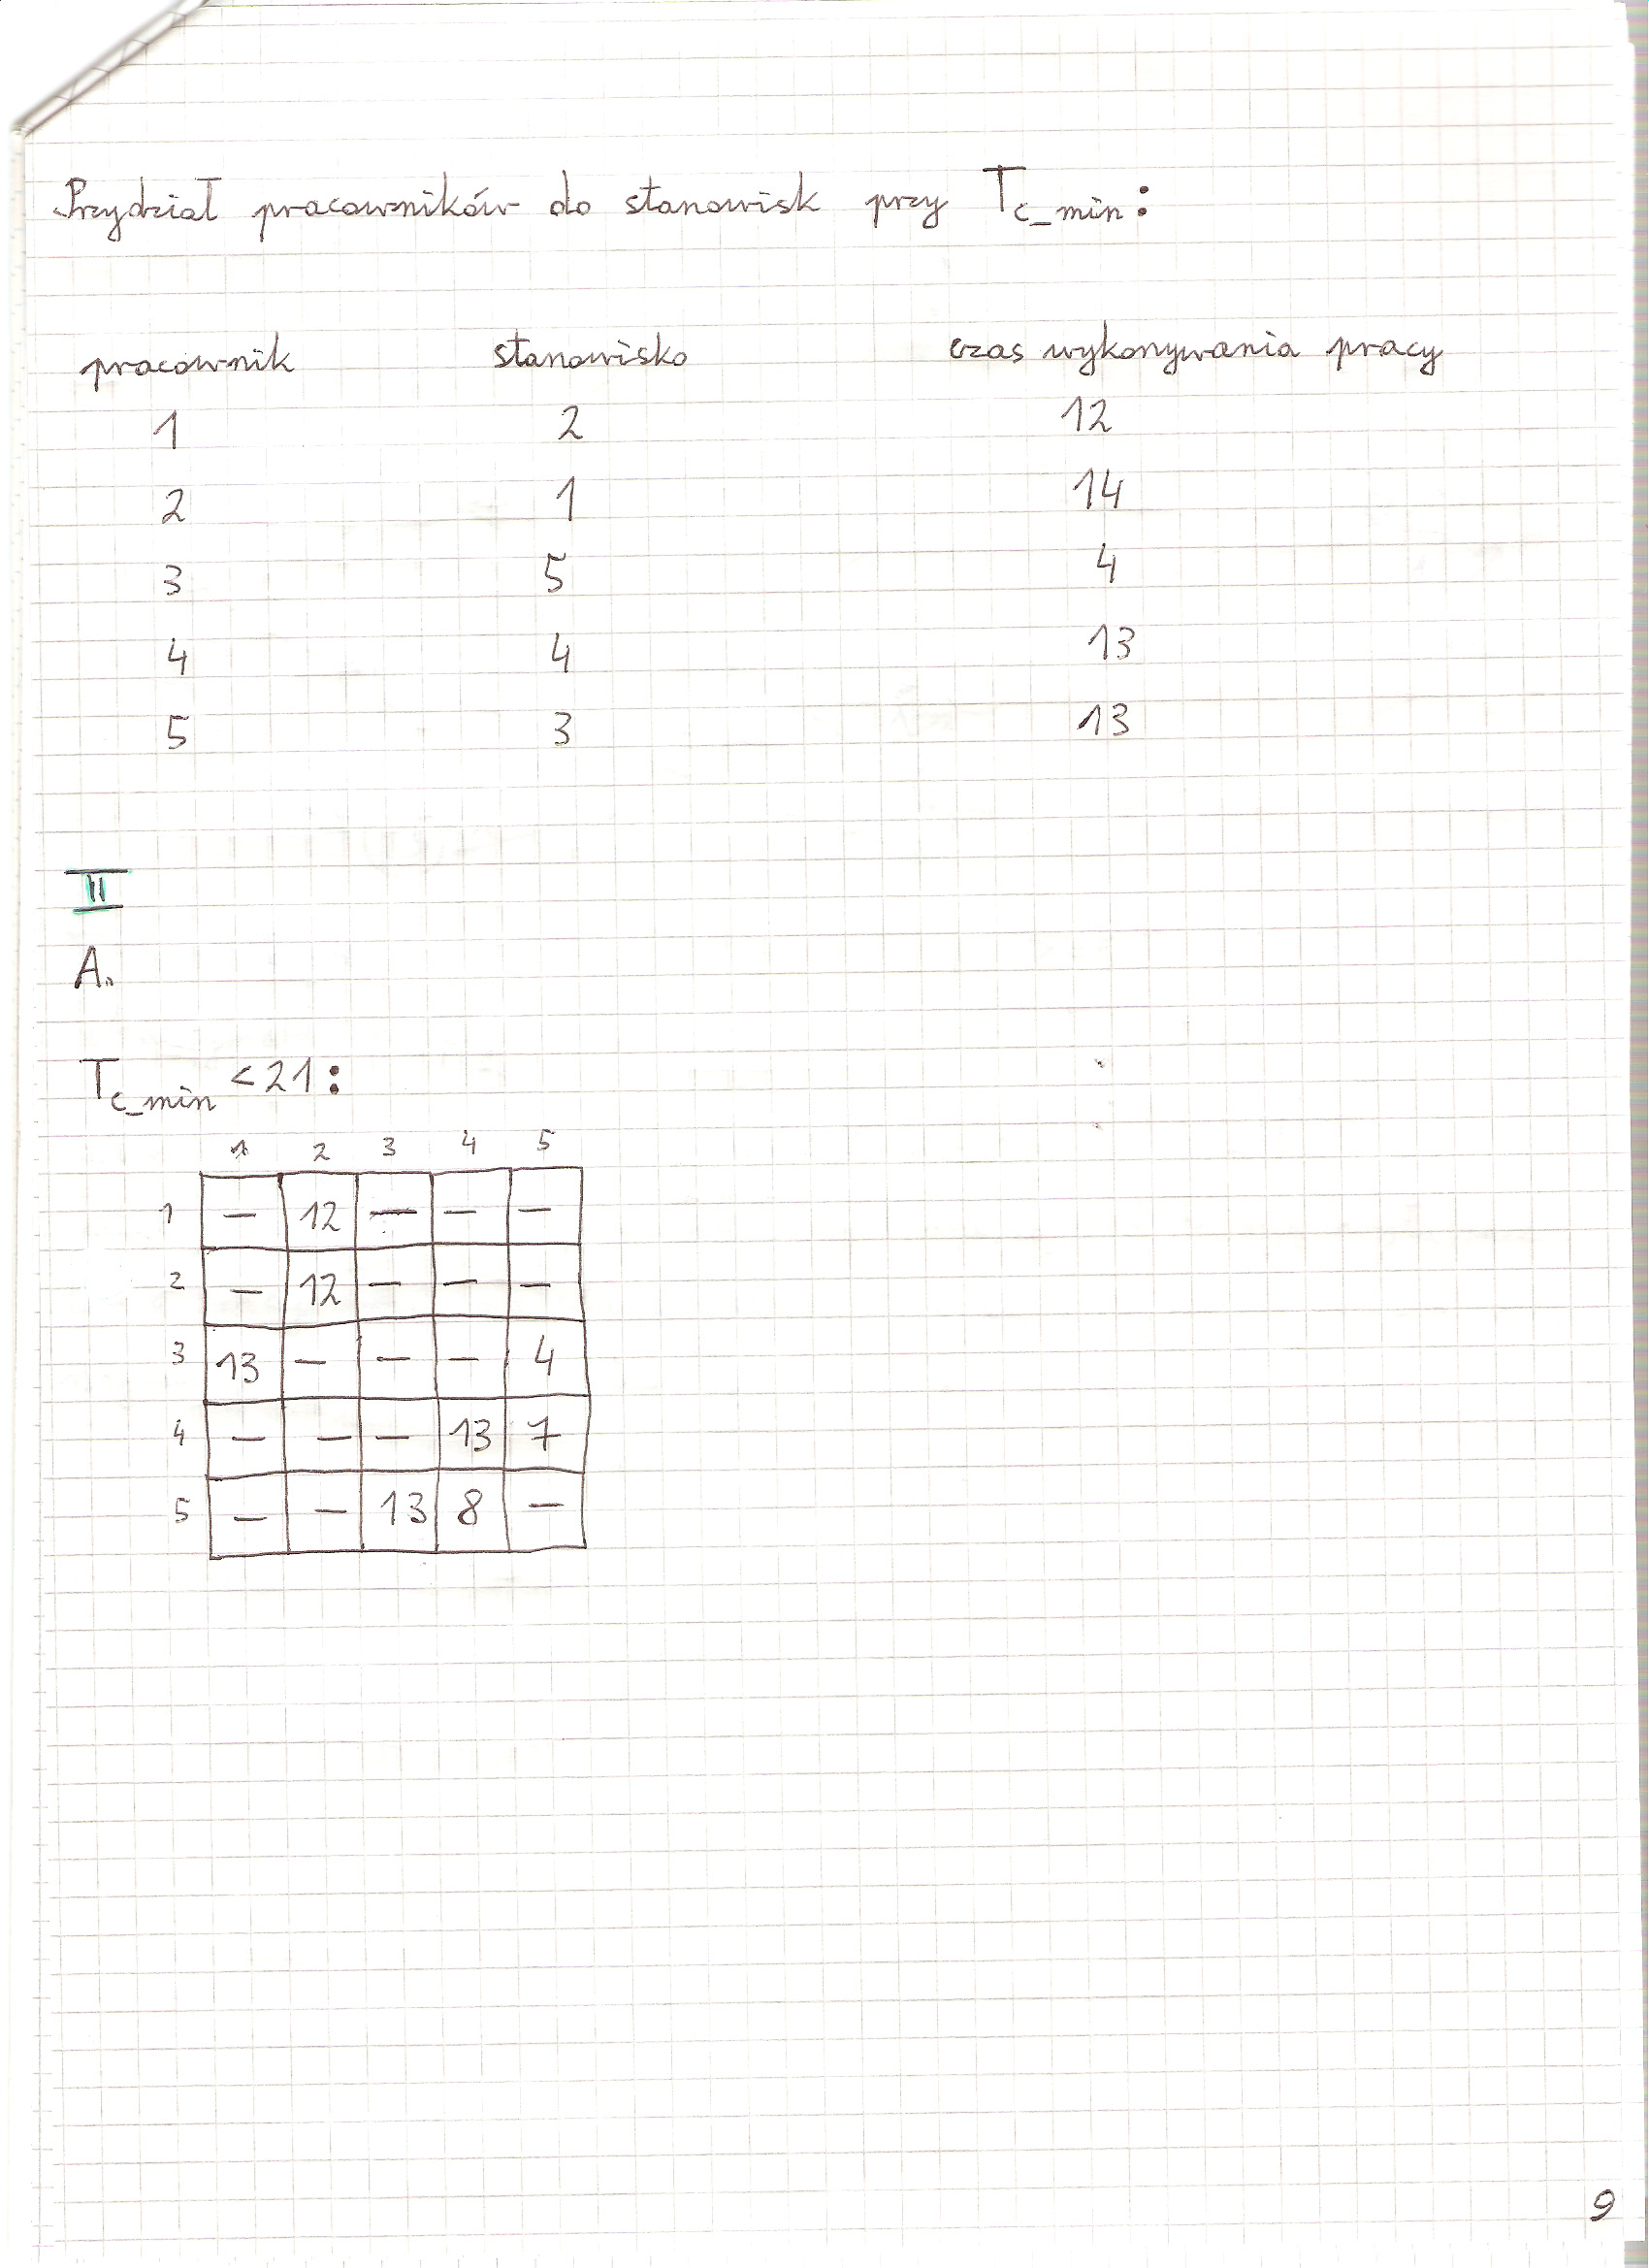 Przydział pracowników do stanowisk przy Tc_min:
pracownik stanowisko czas wykonywania pracy
1 2 12
2 1 14
3 5 4
4 4 13
5 3 13
II
A.
Tc_min < 21:
1 2 3 4 5
1 — 12 — — —
2 — 12 — — —
3 13 — — — 4
4 — — — 13 7
5 — — 13 8 —
9